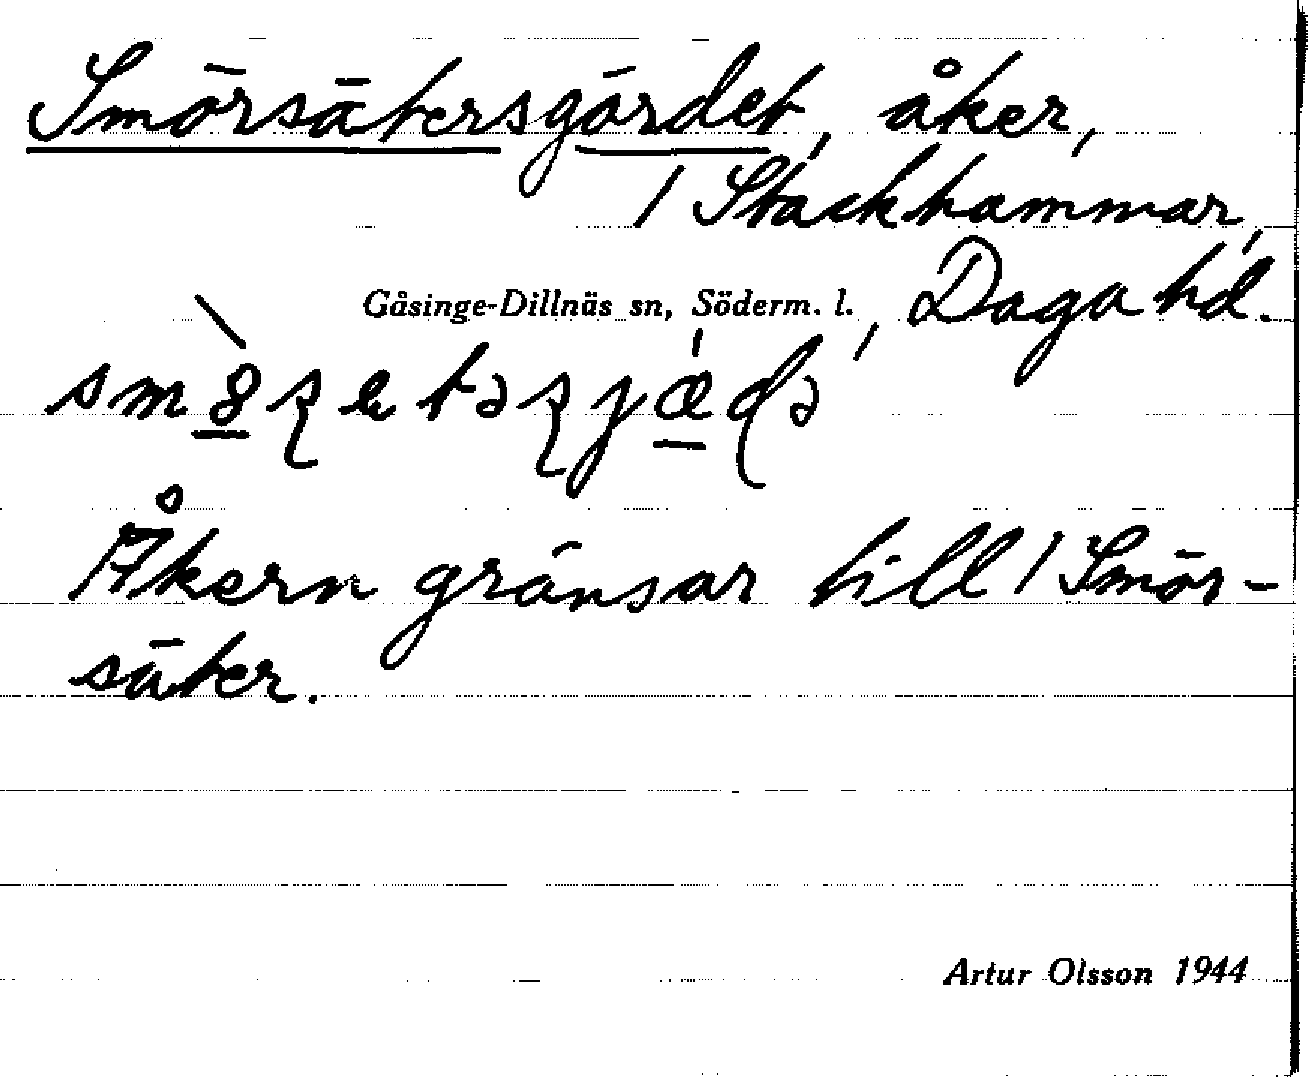 Smörsätersgärdet, åker,
/ Stackhammar,
Gåsinge-Dillnäs sn, Söderm. l., Daga hd.
Åkern gränsar till / Smör-
säter.
Artur Olsson 1944